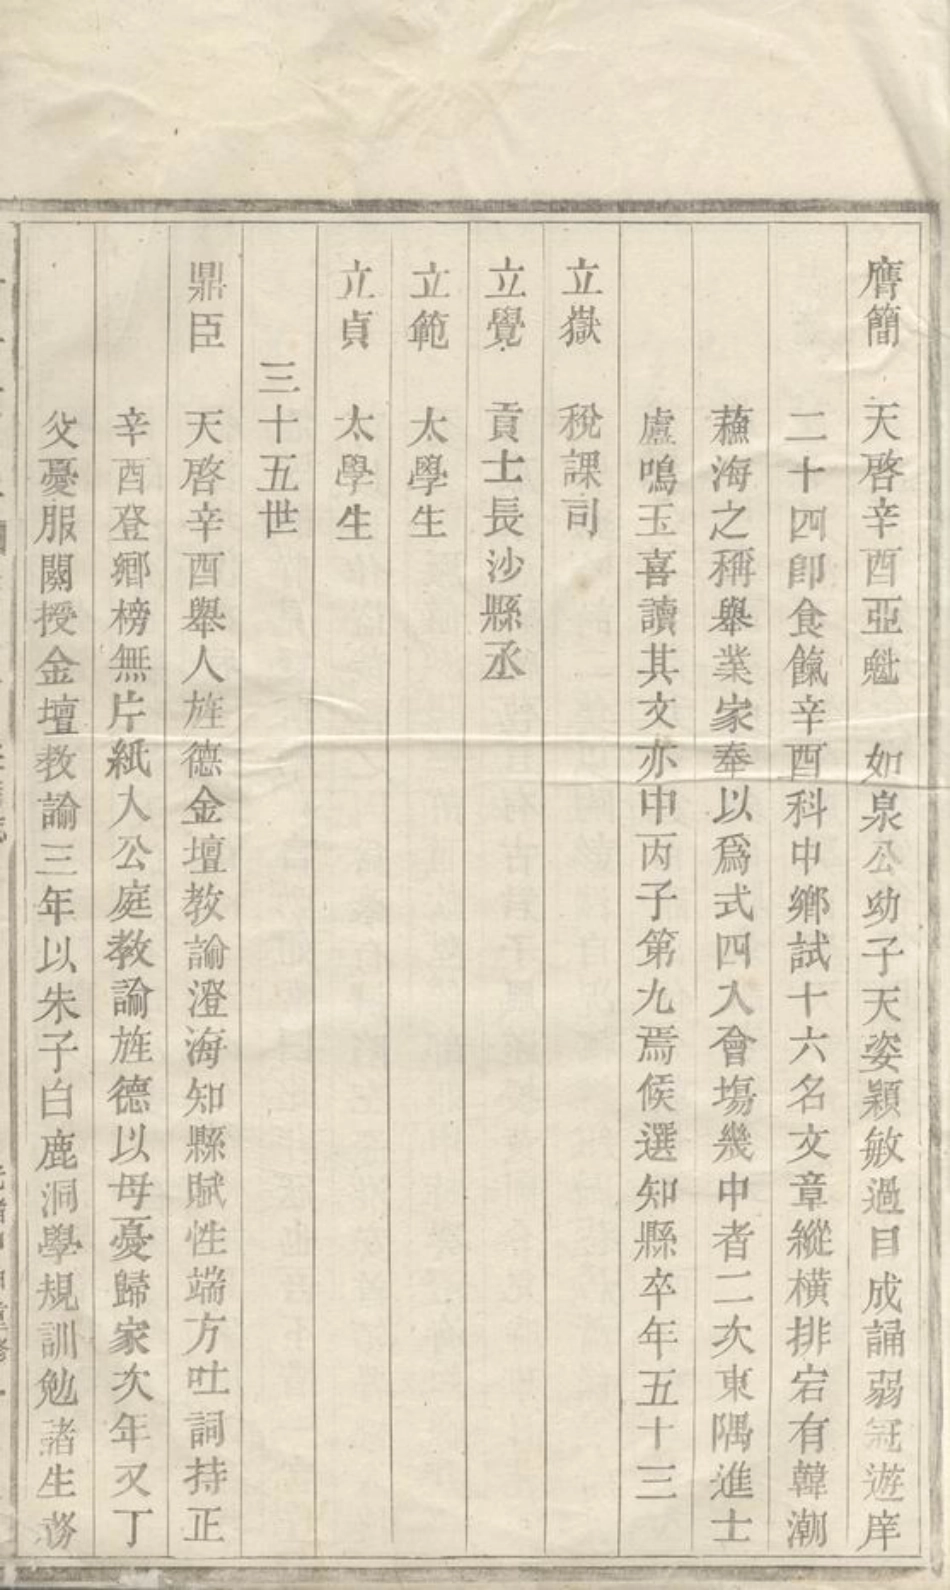 膺簡　天啓辛酉亞魁　如泉公幼子天姿穎敏過目成誦弱冠遊庠
二十四卽食餼辛酉科中鄉試十六名文章縱橫排宕有韓潮
蘓海之稱舉業家奉以爲式四入會塲幾中者二次東隅進士
盧鳴玉喜讀其文亦中丙子第九焉候選知縣卒年五十三
立嶽　稅課司
立覺　貢士長沙縣丞
立範　太學生
立貞　太學生
三十五世
鼎臣　天啓辛酉舉人旌德金壇教諭澄海知縣賦性端方吐詞持正
辛酉登鄉榜無片紙入公庭教諭旌德以母憂歸家次年又丁
父憂服闋授金壇教諭三年以朱子白鹿洞學規訓勉諸生務